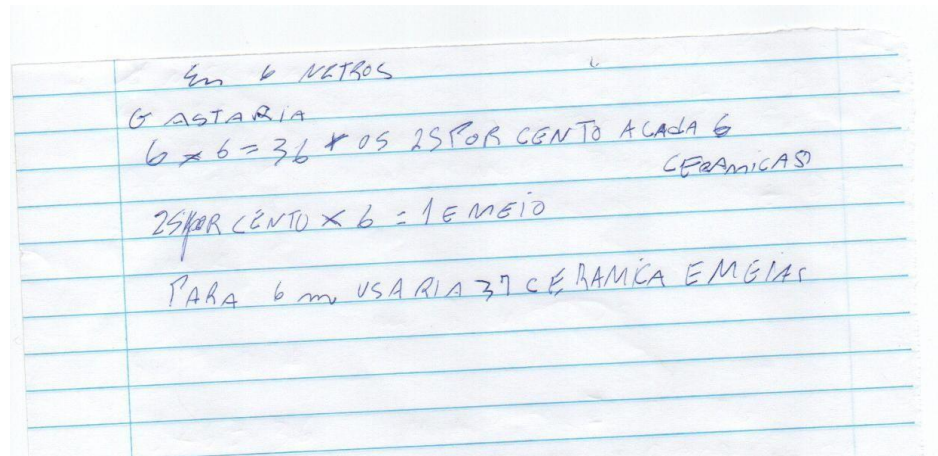 Em 6 METROS
GASTARIA
6 x 6 = 36 + OS 25 POR CENTO A CADA 6
CERAMICAS
25 POR CENTO X 6 = 1 E MEIO
PARA 6 m USARIA 37 CERAMICA E MEIAS